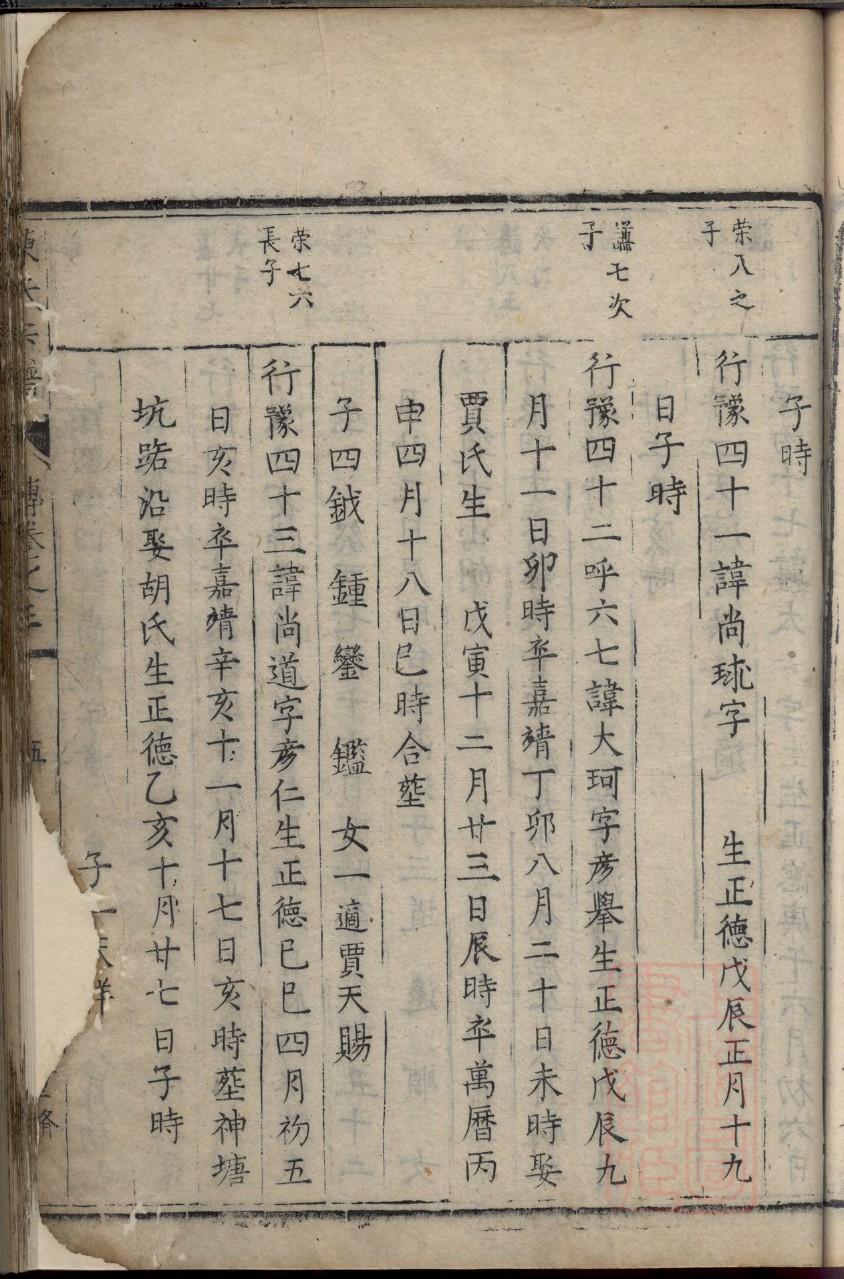 子時
荣八之
子
行豫四十一諱尚球字 生正德戊辰正月十九
日子時
謙七次
子
行豫四十二呼六七諱大珂字彦舉生正德戊辰九
月十一日卯時卒嘉靖丁卯八月二十日未時娶
賈氏生 戊寅十二月廿三日辰時卒萬曆丙
申四月十八日巳時合塟
子四鉞 鍾 鑾 鑑 女一適賈天賜
荣七六
長子
行豫四十三諱尚道字彦仁生正德己巳四月初五
日亥時卒嘉靖辛亥十一月十七日亥時塟神塘
坑踏沿娶胡氏生正德乙亥十月廿七日子時
子一天祥
傳卷之
五